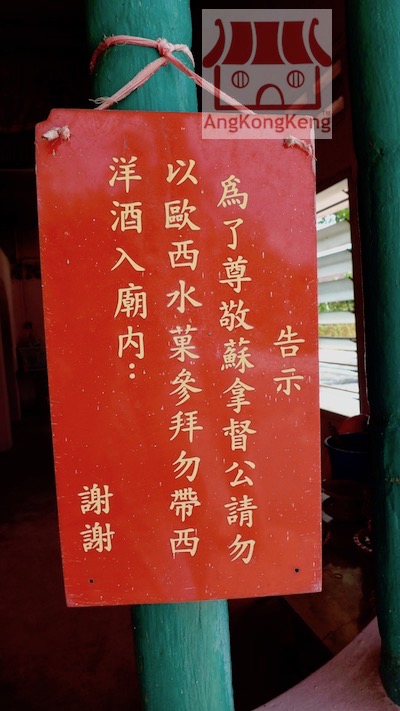 告示
為了尊敬蘇拿督公請勿
以歐西水菓參拜勿帶西
洋酒入廟内:
謝謝
AngKongKeng